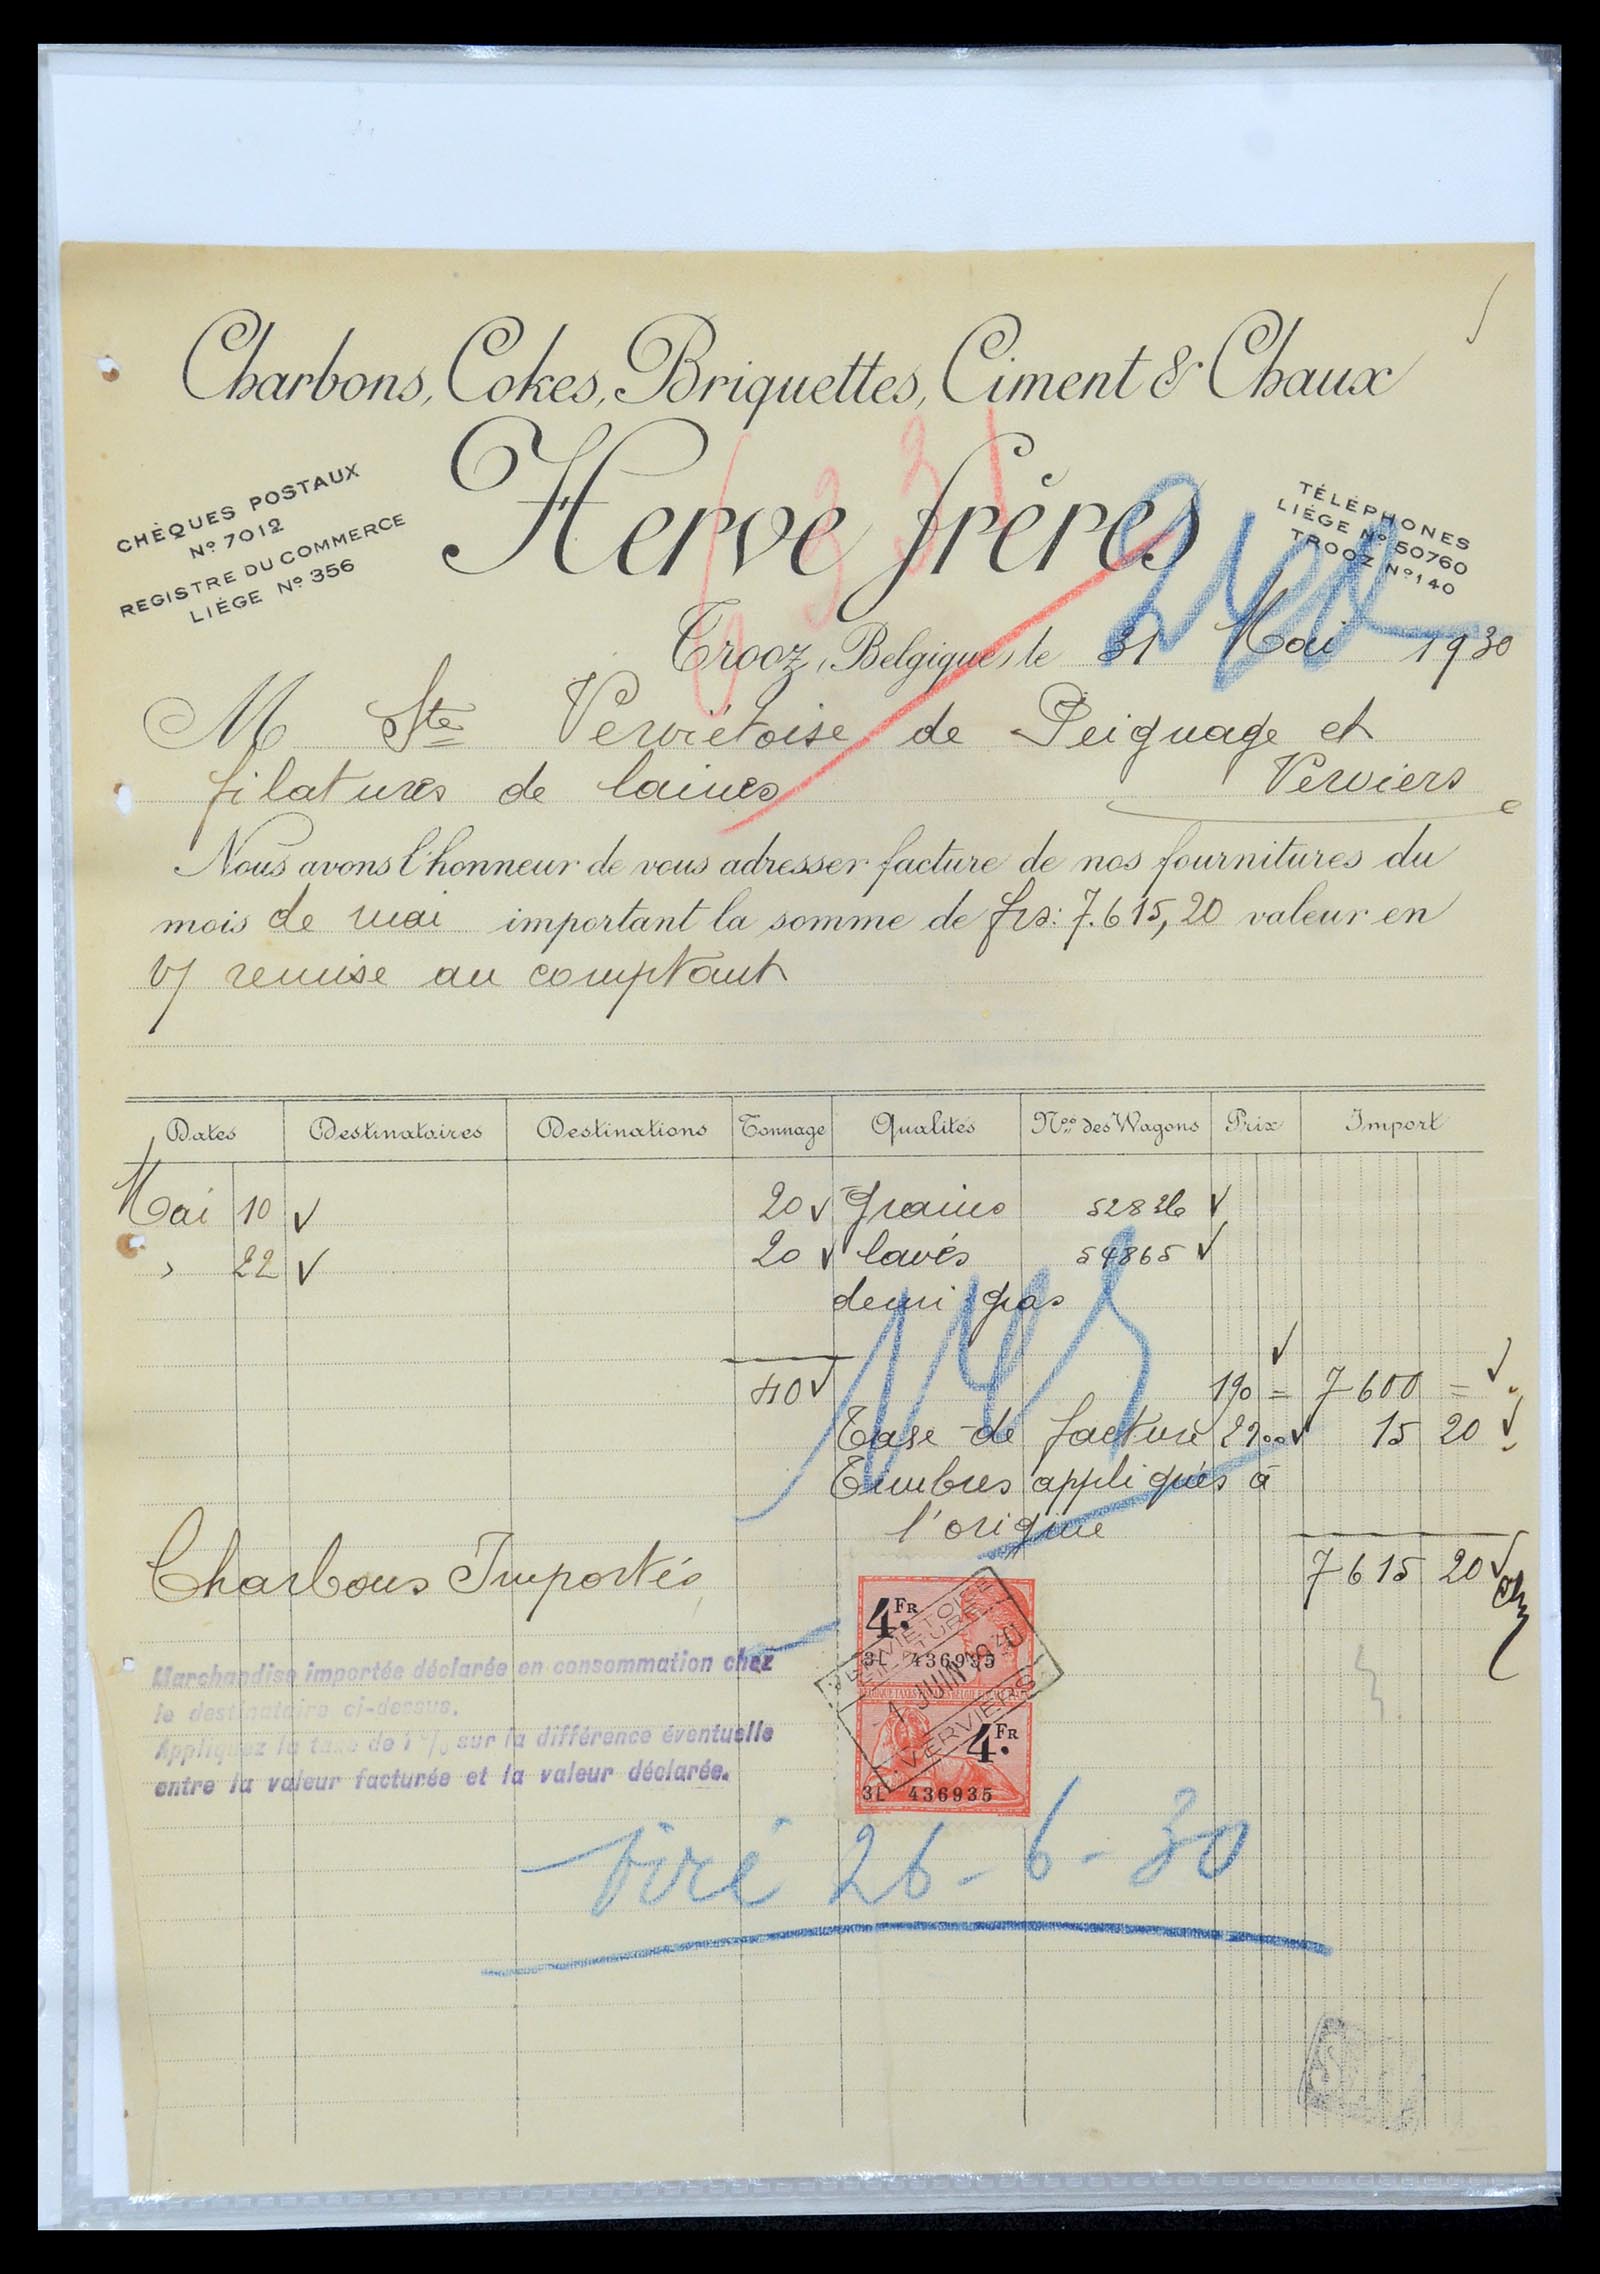 Charbons, Cokes, Briquettes, Ciment & Chaux
Herve frères
CHÈQUES POSTAUX
Nº 7012
REGISTRE DU COMMERCE
LIÉGE Nº 356
TÉLÉPHONES
LIÉGE Nº 50760
TROOZ Nº 140
6331
Trooz, (Belgique), le 31 Mai 1930
M Sté Verviétoise de Peignage et
filatures de laines Verviers
Nous avons l'honneur de vous adresser facture de nos fournitures du
mois de mai important la somme de frs: 7.615,20 valeur en
v/ remise au comptant
Dates Destinataires Destinations Tonnage Qualités Nos des Wagons Prix Import
Mai 10 20 Grains 52826
" 22 20 lavés 54865
demi gras
40 190 = 7600 =
Taxe de facture 2%00 15 20
Timbres appliqués à
l'origine
7615 20
Charbons Importés
Marchandise importée déclarée en consommation chez
le destinataire ci-dessus.
Appliquez la taxe de 1 % sur la différence éventuelle
entre la valeur facturée et la valeur déclarée.
4 FR.
3L 436935
VERVIÉTOISE
JUIN 1930
VERVIERS
4 FR.
3L 436935
Viré 26-6-30